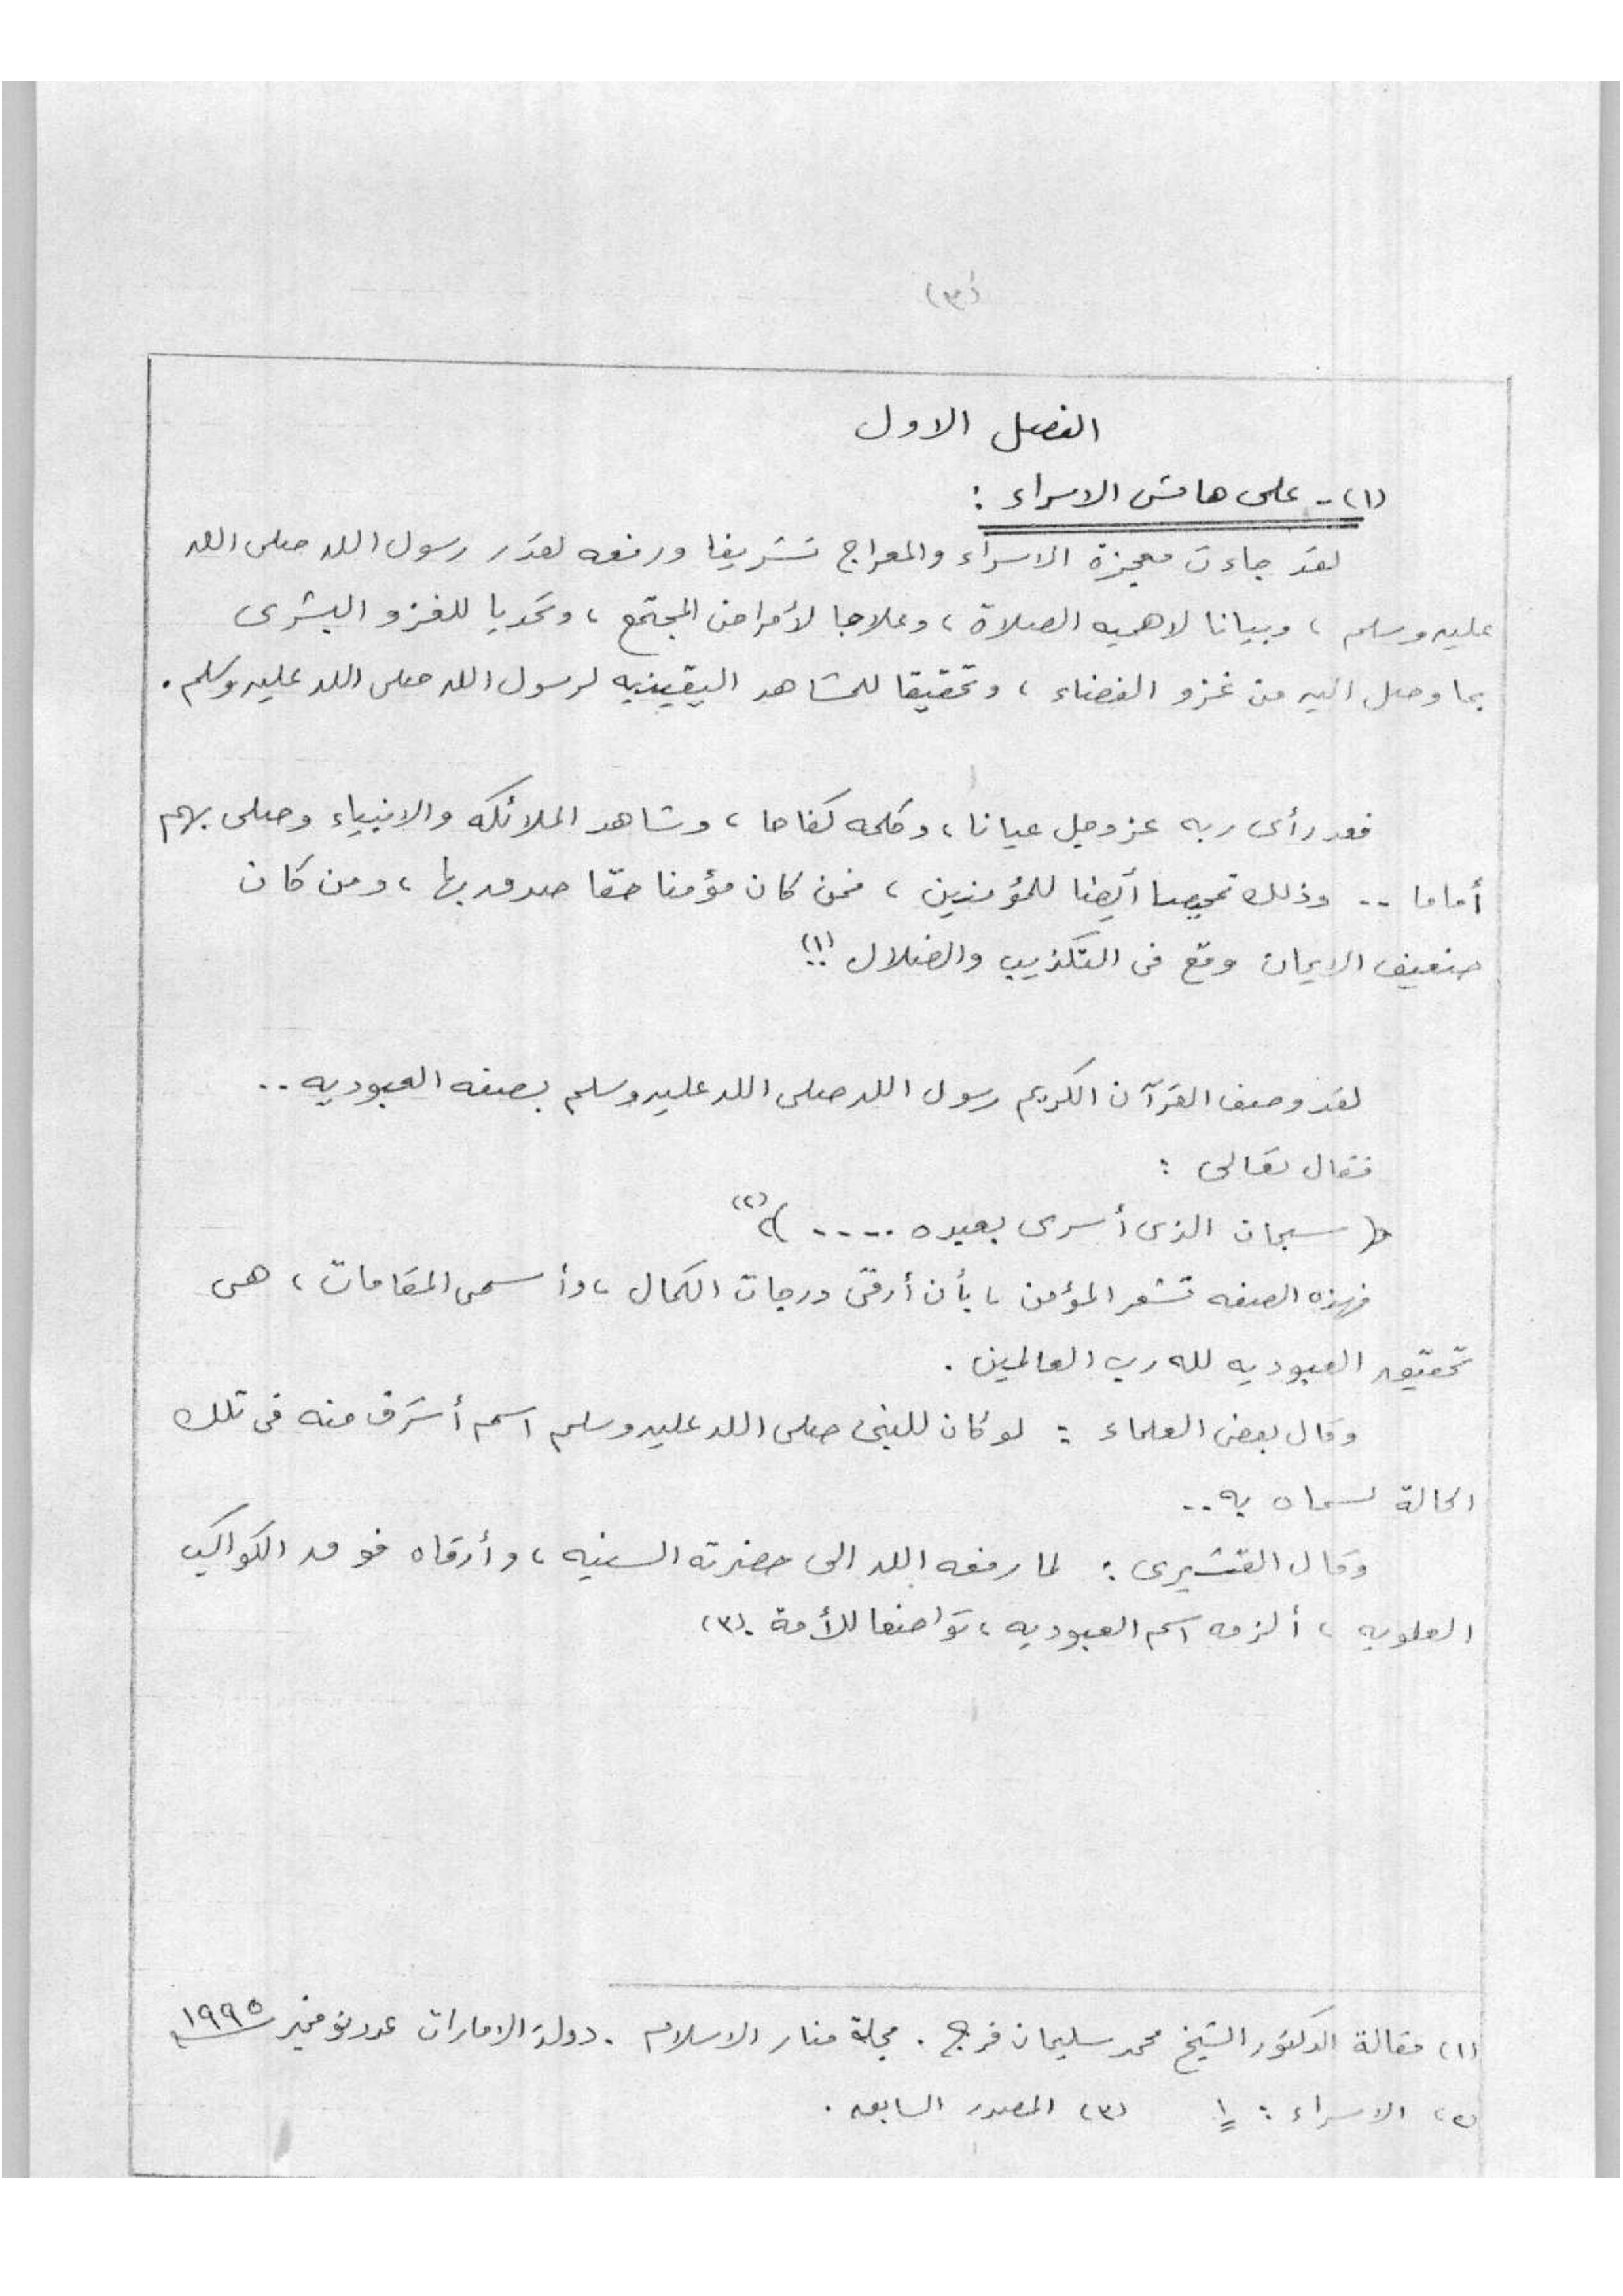 (٣)
الفصل الاول
(١) - على هامش الاسراء :
لقد جاءت معجزة الاسراء والمعراج تشريفا ورفعه لقدر رسول الله صلى الله
عليه وسلم ، وبيانا لاهميه الصلاة ، وعلاجا لأمراض المجتمع ، وتحديا للغزو البشرى
بما وصل اليه من غزو الفضاء ، وتحقيقا للمشاهد اليقينيه لرسول الله صلى الله عليه وسلم .
فقد رأى ربه عز وجل عيانا ، وكلمه كفاحا ، وشاهد الملائكه والانبياء وصلى بهم
أماما .. وذلك تمحيصا أيضا للمؤمنين ، فمن كان مؤمنا حقا صدق بها ، ومن كان
ضعيف الايمان وقع فى التكذيب والضلال !! (١)
لقد وصف القرآن الكريم رسول الله صلى الله عليه وسلم بصفه العبوديه ..
فقال تعالى :
﴿ سبحان الذى أسرى بعبده ..... ﴾ (٢)
فهذه الصفه تشعر المؤمن ، بأن أرقى درجات الكمال ، وأسمى المقامات ، هى
تحقيق العبوديه لله رب العالمين .
وقال بعض العلماء : لو كان للنبى صلى الله عليه وسلم اسم أشرف منه فى تلك
الحالة لسماه به ..
وقال القشيرى : لما رفعه الله الى حضرته السنيه ، وأرقاه فوق الكواكب
العلويه ، ألزمه اسم العبوديه ، تواضعا للأمة . (٣)
(١) مقالة الدكتور الشيخ محمد سليمان فرج . مجلة منار الاسلام . دولة الامارات عدد نوفمبر ١٩٩٥
(٢) الاسراء : ١ (٣) المصدر السابق .